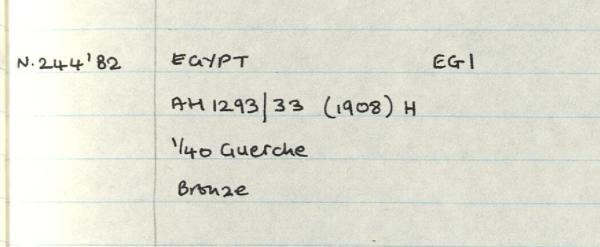 N.244'82 EGYPT EG1
AH 1293|33 (1908) H
1/40 Guerche
Bronze